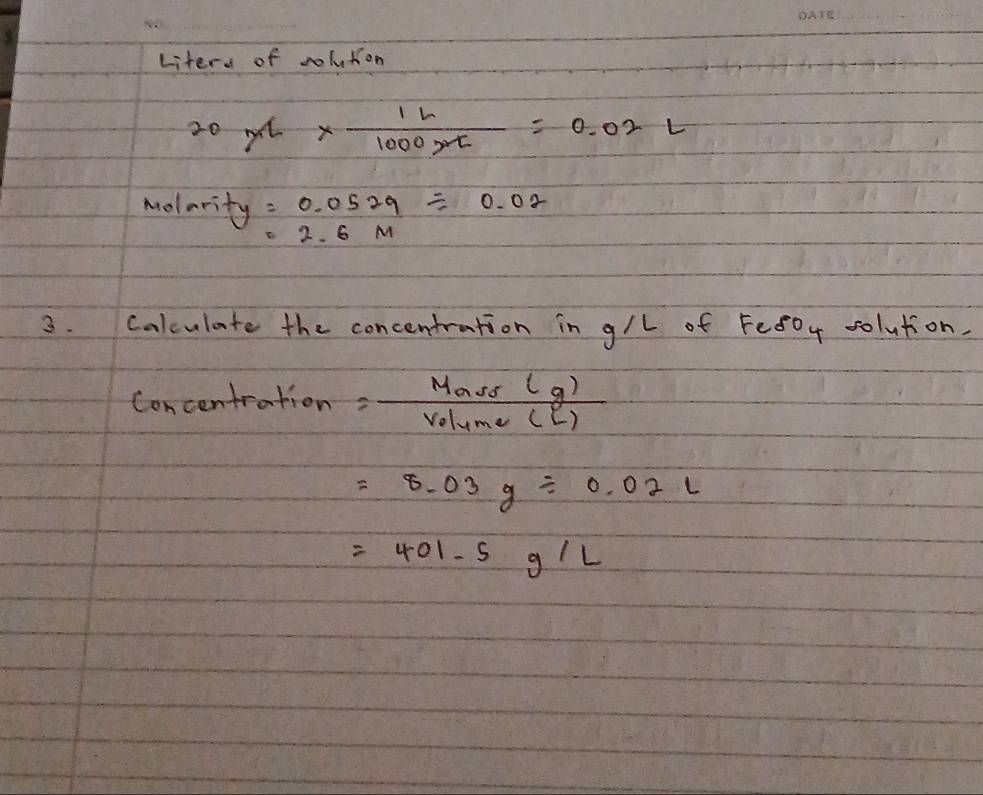 NO.
DATE
Liters of solution
20 mL × 1 L / 1000 mL = 0.02 L
Molarity = 0.0529 ÷ 0.02
= 2.6 M
3. Calculate the concentration in g/L of FeSO4 solution.
Concentration = Mass (g) / Volume (L)
= 8.03 g ÷ 0.02 L
= 401.5 g/L